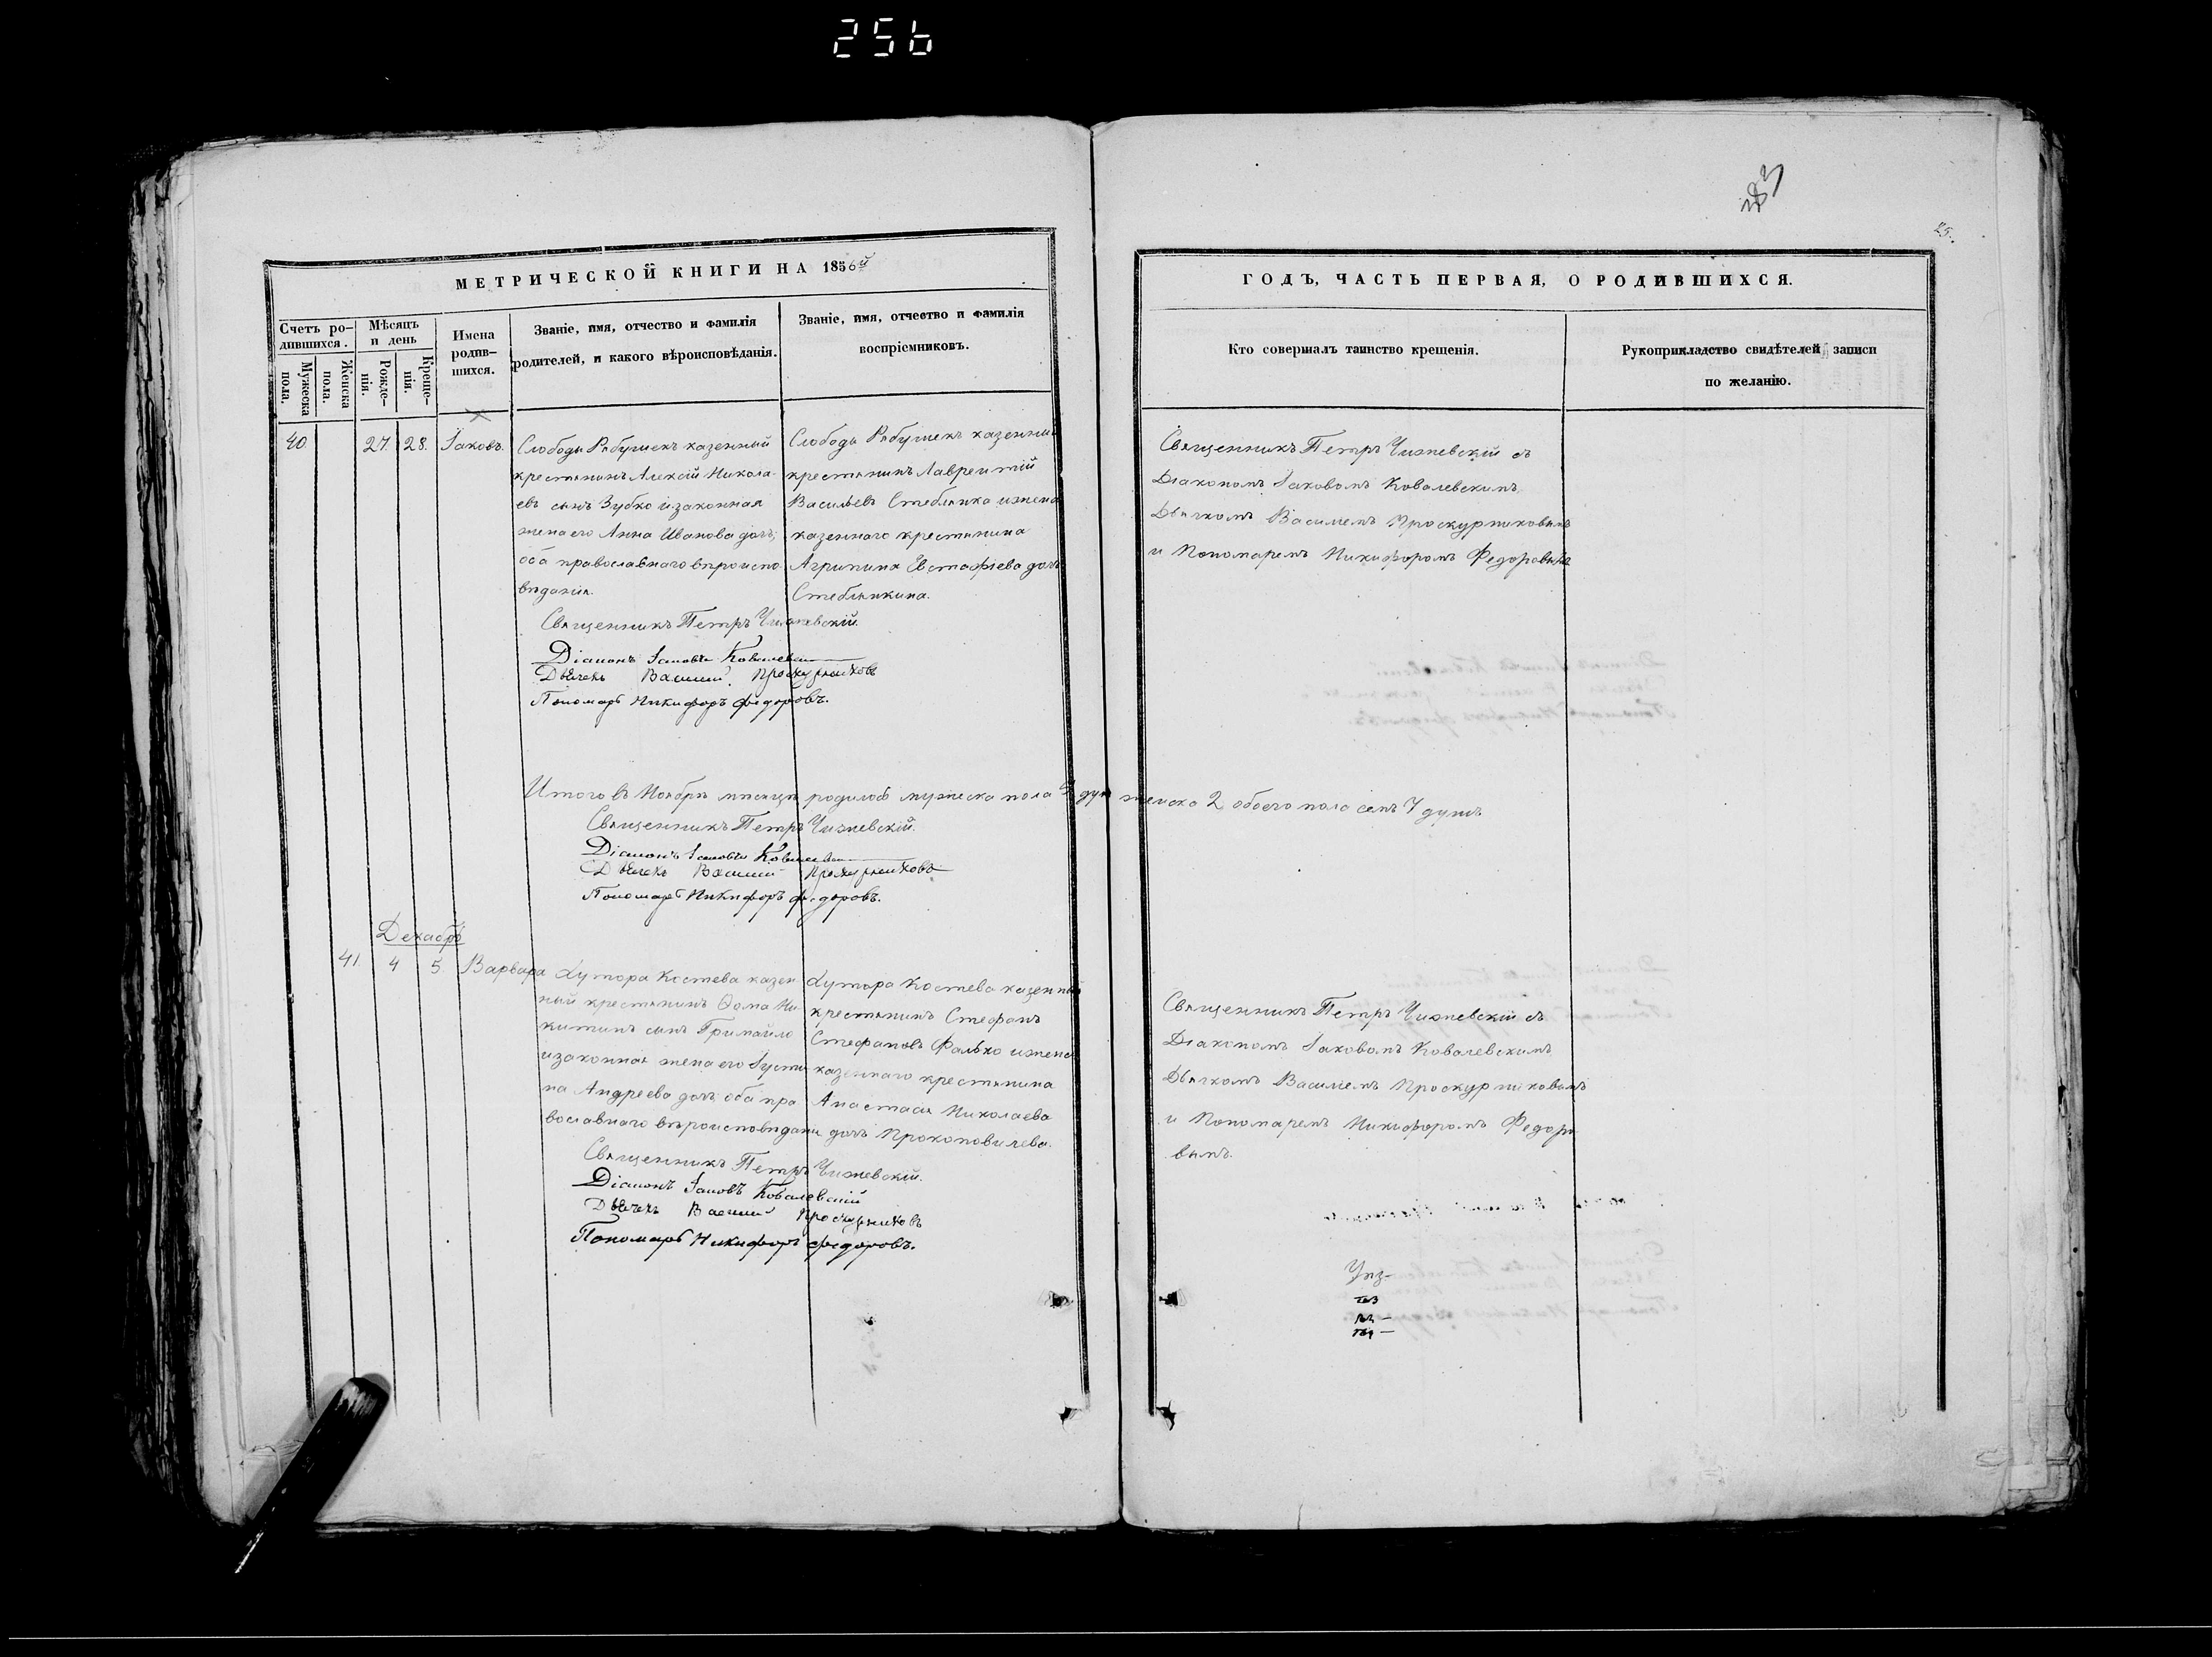 256
283
25.
МЕТРИЧЕСКОЙ КНИГИ НА 1856й
Счетъ ро-
дившихся.
Мужеска
пола.
Женска
пола.
Мѣсяцъ
и день
Рожде-
нія.
Креще-
нія.
Имена
родив-
шихся.
Званіе, имя, отчество и фамилія
родителей, и какого вѣроисповѣданія.
Званіе, имя, отчество и фамилія
воспріемниковъ.
40
27.
28.
Іаковъ.
Слободы Рябушекъ казенный
крестьянинъ Алексій Никола-
евъ сынъ Зубко и законная
жена его Анна Иванова дочь,
оба православнаго вѣроиспо-
вѣданія.
Слободы Рябушекъ казенный
крестьянинъ Лаврентій
Васильевъ Стеблянка и жена
казеннаго крестьянина
Агрипина Евстафіева дочь
Стеблянкина.
Священникъ Петръ Чижевскій.
Діаконъ Іаковъ Ковалевскій
Дьячекъ Василій Проскурниковъ
Пономарь Никифоръ Федоровъ.
Итого въ Ноябрѣ мѣсяцѣ родилось мужеска пола 5 душ женска 2 обоего пола семь 7 душъ
Священникъ Петръ Чижевскій.
Діаконъ Іаковъ Ковалевскій
Дьячекъ Василій Проскурниковъ
Пономарь Никифоръ Федоровъ.
Декабрь
41.
4
5.
Варвара
Хутора Костева казен
ный крестьянинъ Ѳома Ни-
китинъ сынъ Гримайло
и законная жена его Іусти
на Андреева дочь, оба пра
вославнаго вѣроисповѣдани
Хутора Костева казенный
крестьянинъ Стефанъ
Стефановъ Фалько и жена
казеннаго крестьянина
Анастасія Николаева
дочь Прокоповичева.
Священникъ Петръ Чижевскій.
Діаконъ Іаковъ Ковалевскій
Дьячекъ Василій Проскурниковъ
Пономарь Никифоръ Федоровъ.
ГОДЪ, ЧАСТЬ ПЕРВАЯ, О РОДИВШИХСЯ.
Кто совершалъ таинство крещенія.
Рукоприкладство свидѣтелей записи
по желанію.
Священникъ Петръ Чижевскій съ
Діакономъ Іаковомъ Ковалевскимъ,
Дьячкомъ Василіемъ Проскурниковымъ
и Пономаремъ Никифоромъ Федоровымъ
Священникъ Петръ Чижевскій съ
Діакономъ Іаковомъ Ковалевскимъ,
Дьячкомъ Василіемъ Проскурниковымъ
и Пономаремъ Никифоромъ Федоро
вымъ.